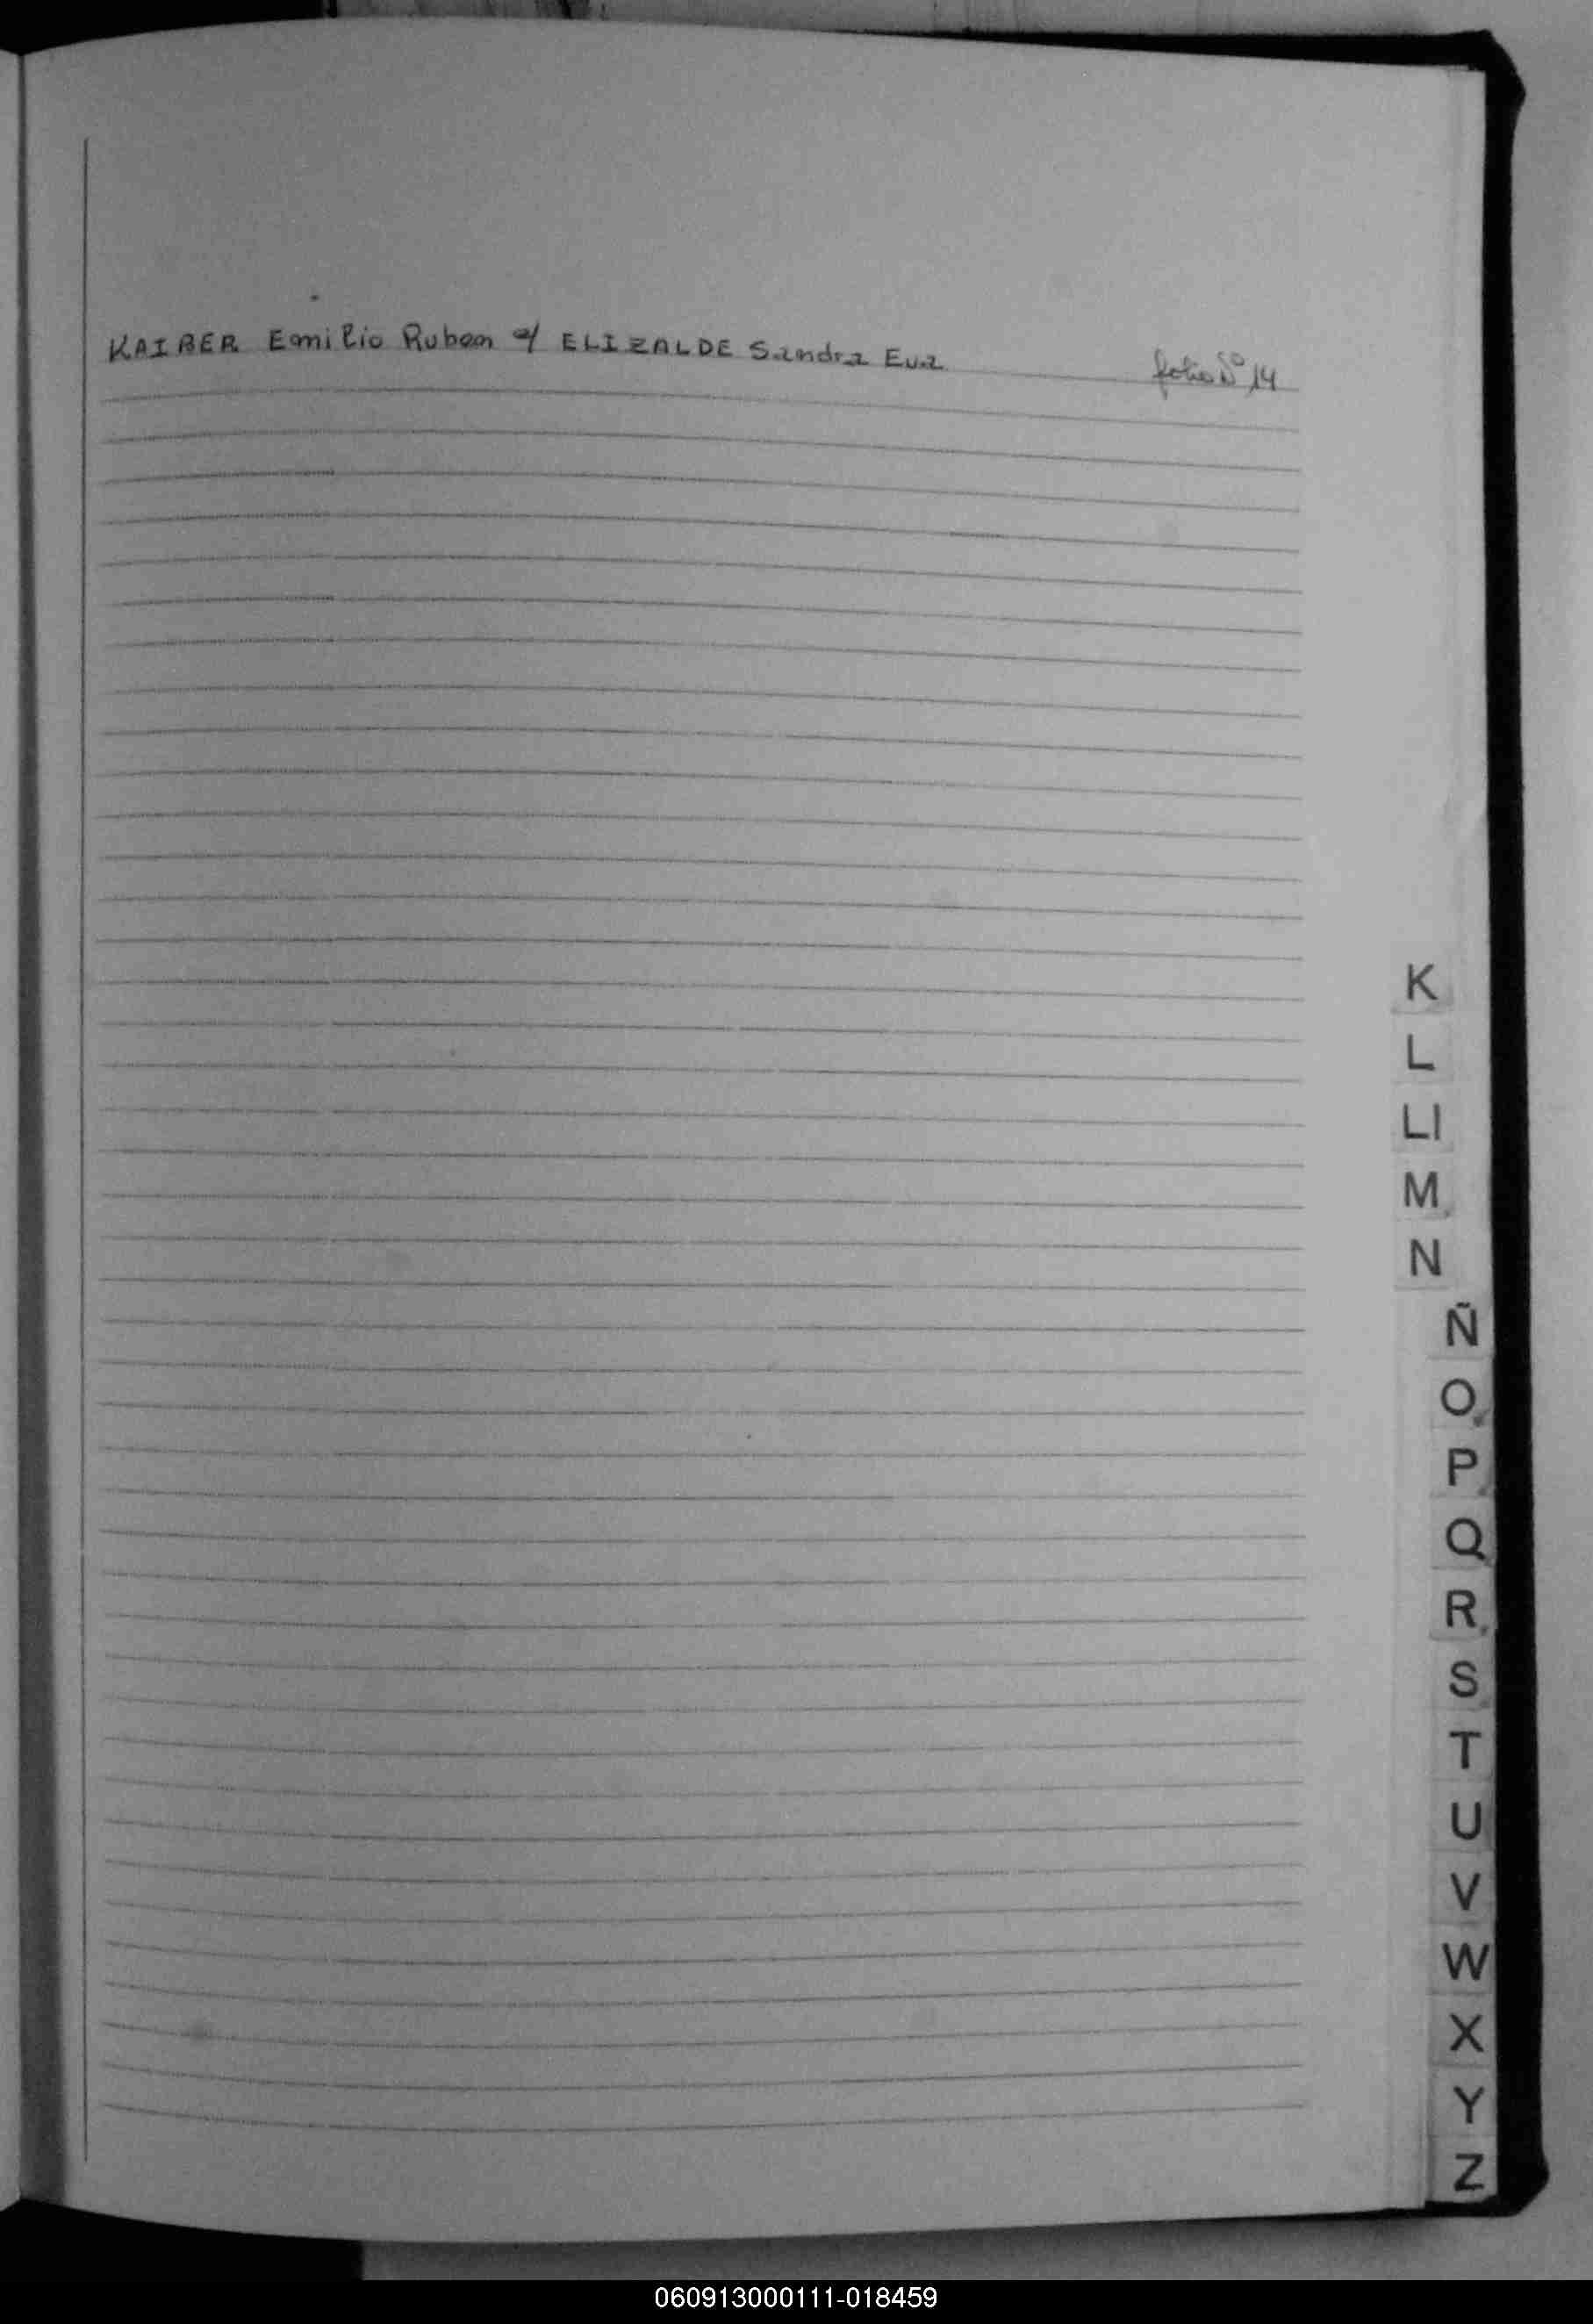 KAIBER Emilio Ruben c/ ELIZALDE Sandra Eva folio Nº 14
K
L
Ll
M
N
Ñ
O
P
Q
R
S
T
U
V
W
X
Y
Z
060913000111-018459